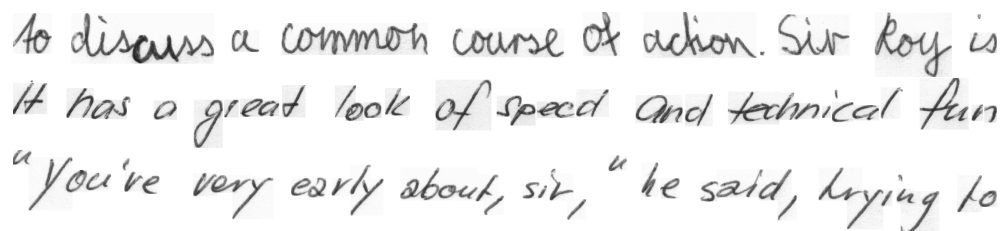 to discuss a common course of action. Sir Roy is
It has a great look of speed and technical fun
"You're very early about, sir," he said, trying to